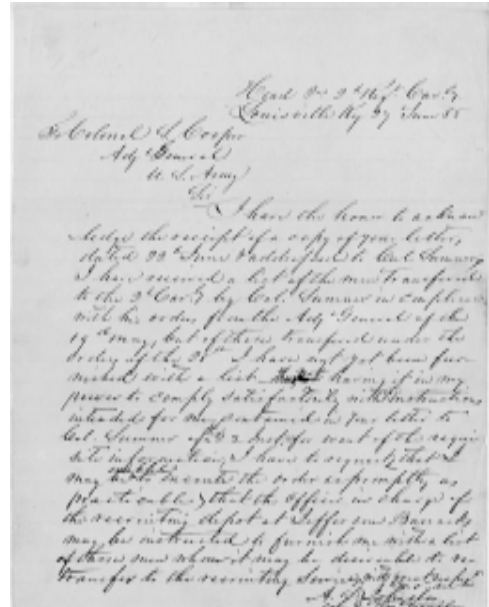 Head Qrs 2d Regt. Cavly
Louisville Ky 27 June 55
To Colonel S. Cooper
Adjt General
U. S. Army
Sir
I have the honor to acknow
ledge the receipt of a copy of your letter,
dated 22d June & addressed to Col. Sumner
I have received a list of the men transferred
to the 2d Cavly by Col. Sumner in compliance
with his orders from the Adjt General of the
19th May, but of those transferred under the
orders of the 28th I have not yet been fur
nished with a list having it in my
power to comply satisfactorily with instructions
intended for me, contained in your letter to
Col. Sumner of the 22 inst. for want of the requi
site information, I have to request, that I
may be to execute the order as promptly as
practicable, that the officer in charge of
the recruiting depot at Jefferson Barracks
may be instructed to furnish me with a list
of those men whom it may be desirable to re
transfer to the recruiting Service,
A. S. Johnston